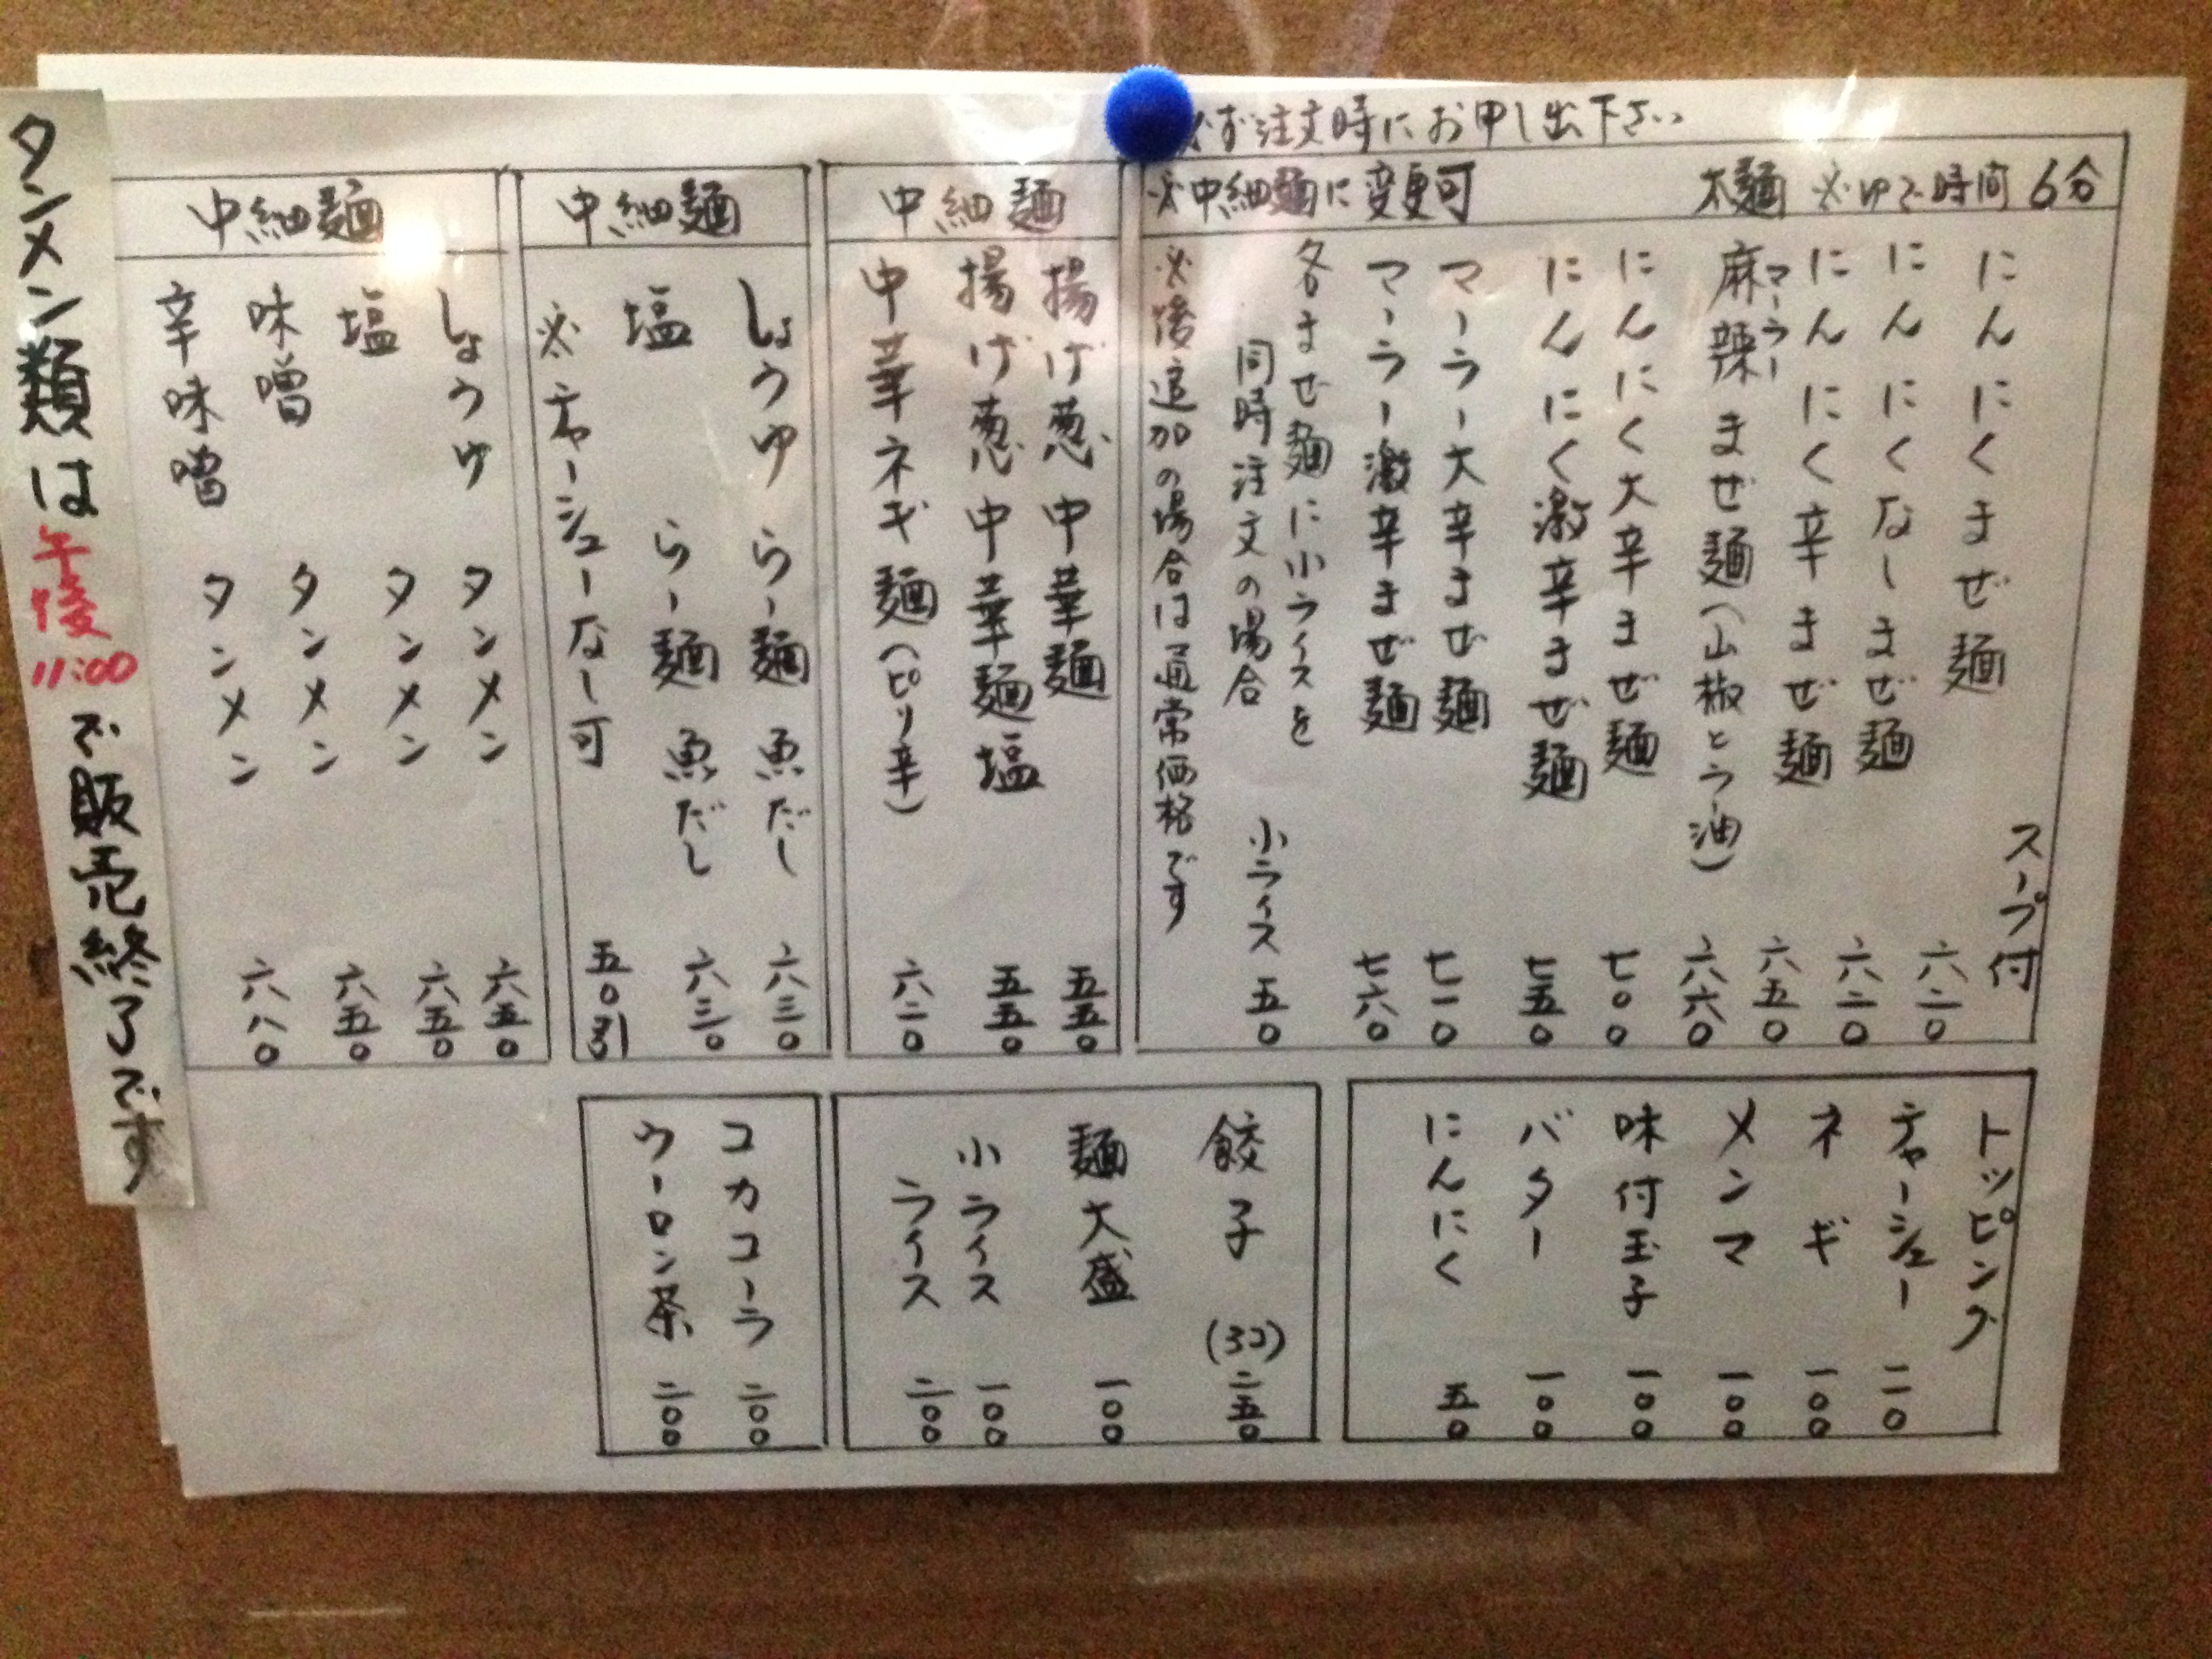 ず注文時にお申し出下さい
太麺 ※ゆで時間 6分
※中細麺に変更可
スープ付
にんにくまぜ麺 六二〇
にんにくなしまぜ麺 六二〇
にんにく辛まぜ麺 六五〇
マーラー
麻辣まぜ麺(山椒とラー油) 六六〇
にんにく大辛まぜ麺 七〇〇
にんにく激辛まぜ麺 七五〇
マーラー大辛まぜ麺 七一〇
マーラー激辛まぜ麺 七六〇
各まぜ麺に小ライスを
同時注文の場合 小ライス 五〇
※後追加の場合は通常価格です
中細麺
揚げ葱中華麺 五五〇
揚げ葱中華麺塩 五五〇
中華ネギ麺(ピリ辛) 六二〇
中細麺
しょうゆ らー麺 魚だし 六三〇
塩 らー麺 魚だし 六三〇
※チャーシューなし可 五〇引
中細麺
しょうゆ タンメン 六五〇
塩 タンメン 六五〇
味噌 タンメン 六五〇
辛味噌 タンメン 六八〇
タンメン類は午後11:00で販売終了です
トッピング
チャーシュー 二一〇
ネギ 一〇〇
メンマ 一〇〇
味付玉子 一〇〇
バター 一〇〇
にんにく 五〇
餃子 (3コ) 二五〇
麺大盛 一〇〇
小ライス 一〇〇
ライス 二〇〇
コカコーラ 二〇〇
ウーロン茶 二〇〇